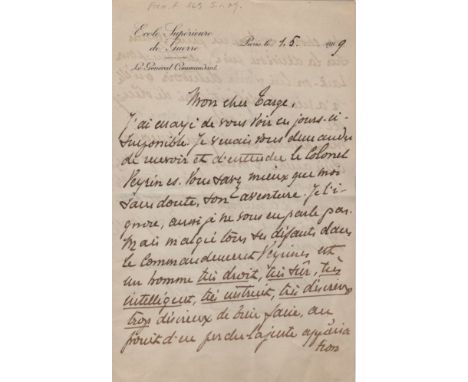 Ecole Supérieure
de Guerre
Le Général Commandant
Paris, le 1.5. 1909
Mon cher Targe,
J'ai essayé de vous voir ces jours-ci.
Impossible. Je venais vous demander
de recevoir et d'entendre le Colonel
Peyrines. Vous savez mieux que moi
sans doute, son aventure. Je l'i-
gnore, aussi je ne vous en parle pas.
Mais malgré tous ses défauts dans
le Commandement Peyrines est
un homme très droit, très sûr, très
intelligent, très instruit, très désireux
trop désireux de bien faire, au
point d'en perdre la juste apprécia
tion